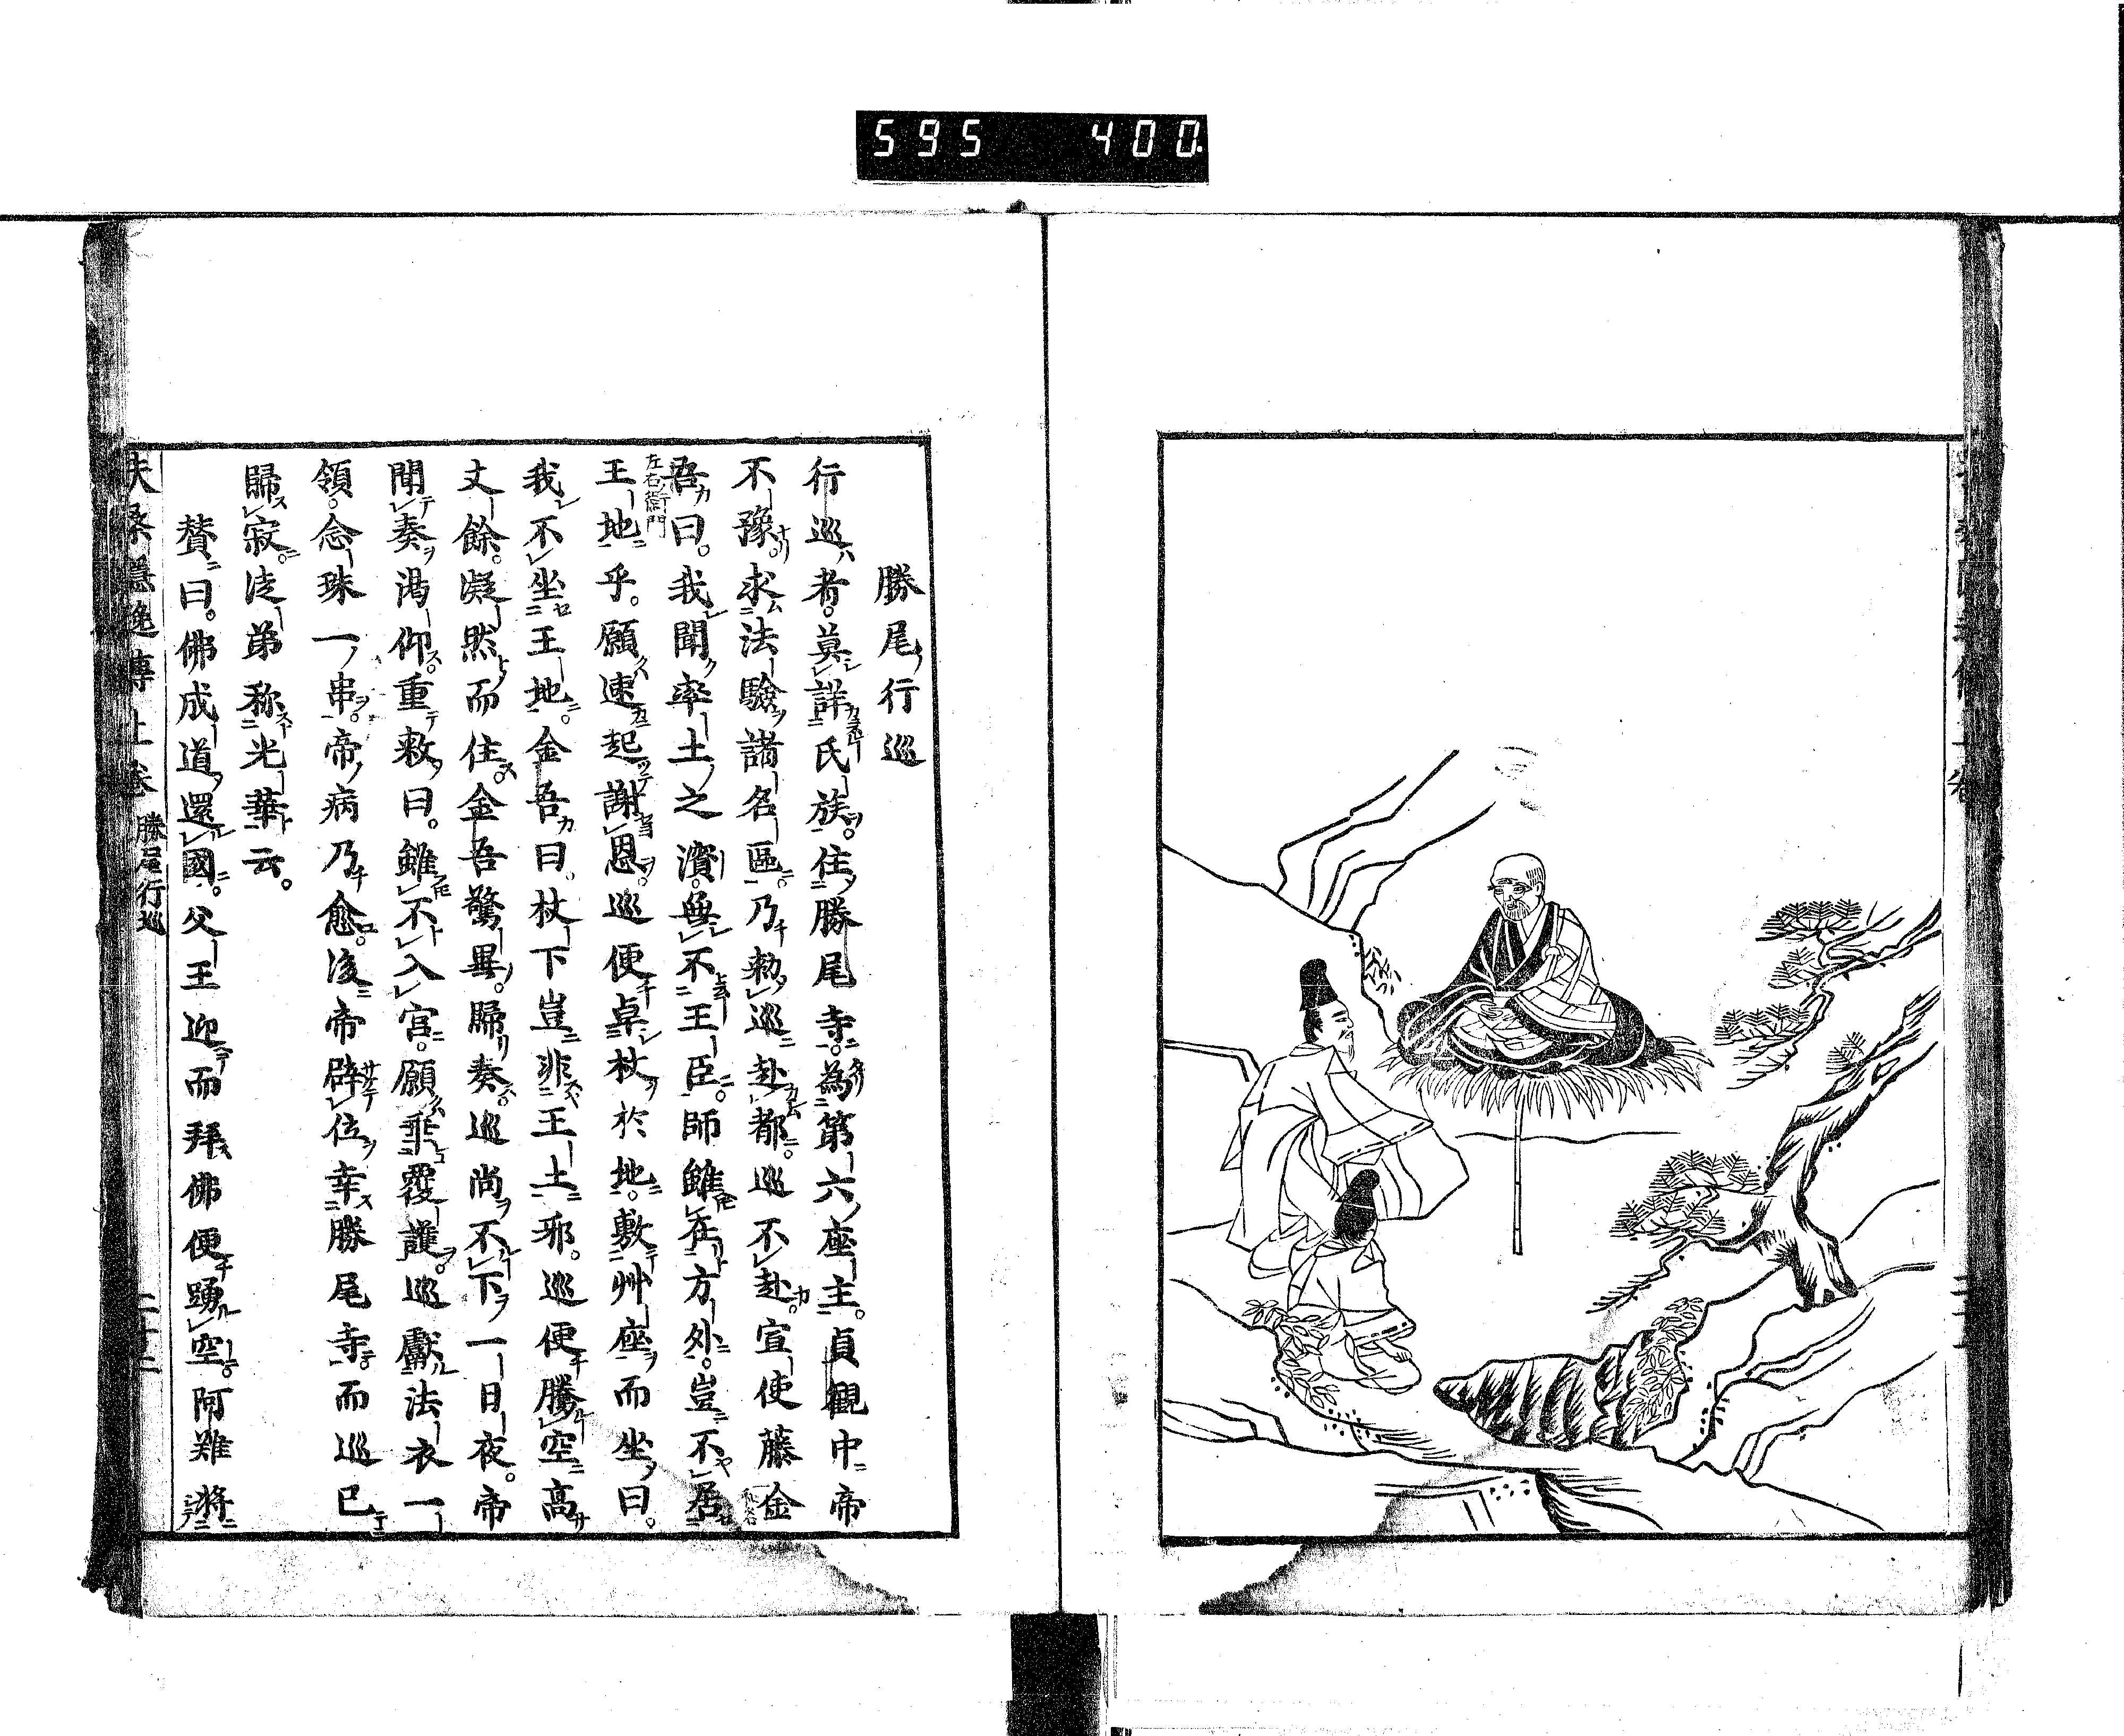 595 400
勝尾行巡
行巡者。莫詳氏族。住勝尾寺。為第六座主。貞觀中帝
不豫。求法驗諸名區。乃勅巡赴都。巡不赴。宣使藤金
吾曰。我聞率土之濱。無不王臣。師雖在方外。豈不居
左右衛門
王地乎。願速起謝恩。巡便卓杖於地。敷艸座而坐曰。
我不坐王地。金吾曰。杖下豈非王土邪。巡便騰空高
丈餘。凝然而住。金吾驚異。歸奏。巡尚不下一日夜。帝
聞奏渇仰。重敕曰。雖不入宮。願垂覆護。巡獻法衣一
領。念珠一串。帝病乃愈。後帝辟位幸勝尾寺。而巡已
歸寂。徒弟称光華云。
賛曰。佛成道還國。父王迎而拜佛便踴空。阿難將
扶桑隱逸傳上卷 勝尾行巡